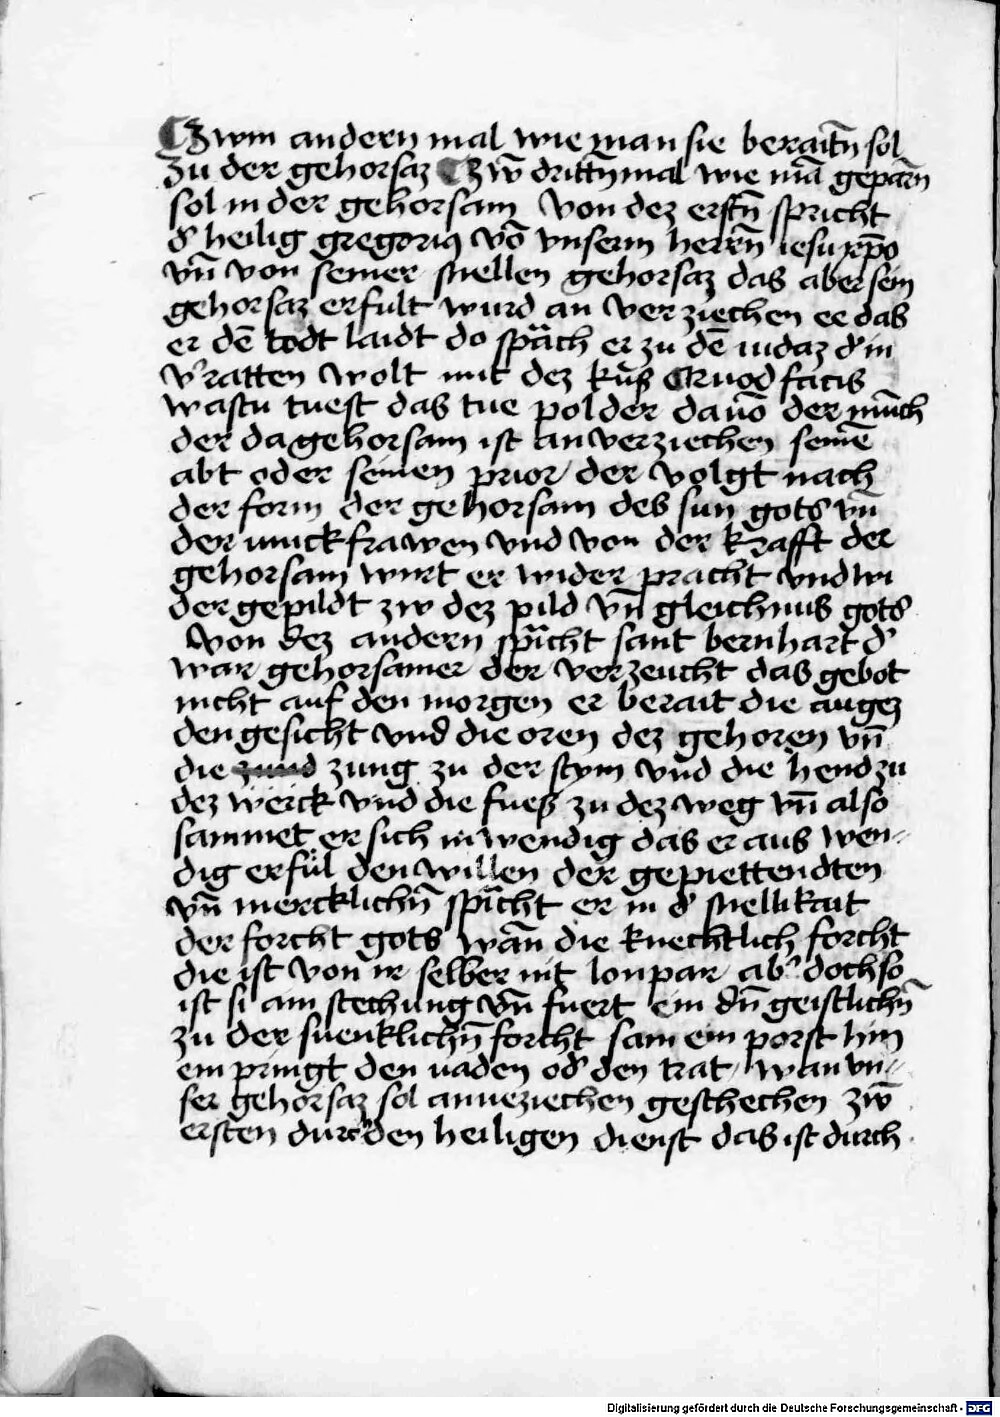 Zwm andern mal wie man sie beraitñ sol
Zu der gehorsaz Zw̄ drittñ mal wie mā geparñ
sol in der gehorsam Von dez erstñ spricht
d' heilig gregorius vō vnserm herrñ iesu xp̄o
vn̄ von seiner snellen gehorsaz das aber sein
gehorsaz erfult wurd an verziechen ee das
er dē todt laidt do sprach er zu dē iudaz d' in
v'ratten wolt mit dez kus Quod facis
wastu tuest das tue polder dauō der mūch
der da gehorsam ist an verziechen seinē
abt oder seinen prior der volgt nach
der form der gehorsam des sun gots vn̄
der iunckfrawen vnd von der krafft der
gehorsam wirt er wider pracht vnd wi
der gepildt zw dez pild vn̄ gleichnus gots
Von dez andern spricht sant bernhart d'
war gehorsamer der verzeucht das gebot
nicht auf den morgen er berait die augez
den gesicht vnd die oren dez gehoren vn̄
die zung zu der stym vnd die hend zu
dez werck vnd die fues zu dez weg vn̄ also
sammet er sich inwendig das er aus wen-
dig erfül den willen der gepiettendten
vn̄ mercklichñ spricht er in d' snellikait
der forcht gots wān die knechtlich forcht
die ist von ir selber nit lonpar ab' doch so
ist si ain stechung vn̄ fuert ein dñ geistlichñ
zu der suenklichñ forcht sam ein porst hin
ein pringt den vaden od' den trat wan vn-
ser gehorsaz sol an veziechen geschechen zw̄
ersten durch den heiligen dienst das ist durch
Digitalisierung gefördert durch die Deutsche Forschungsgemeinschaft - DFG